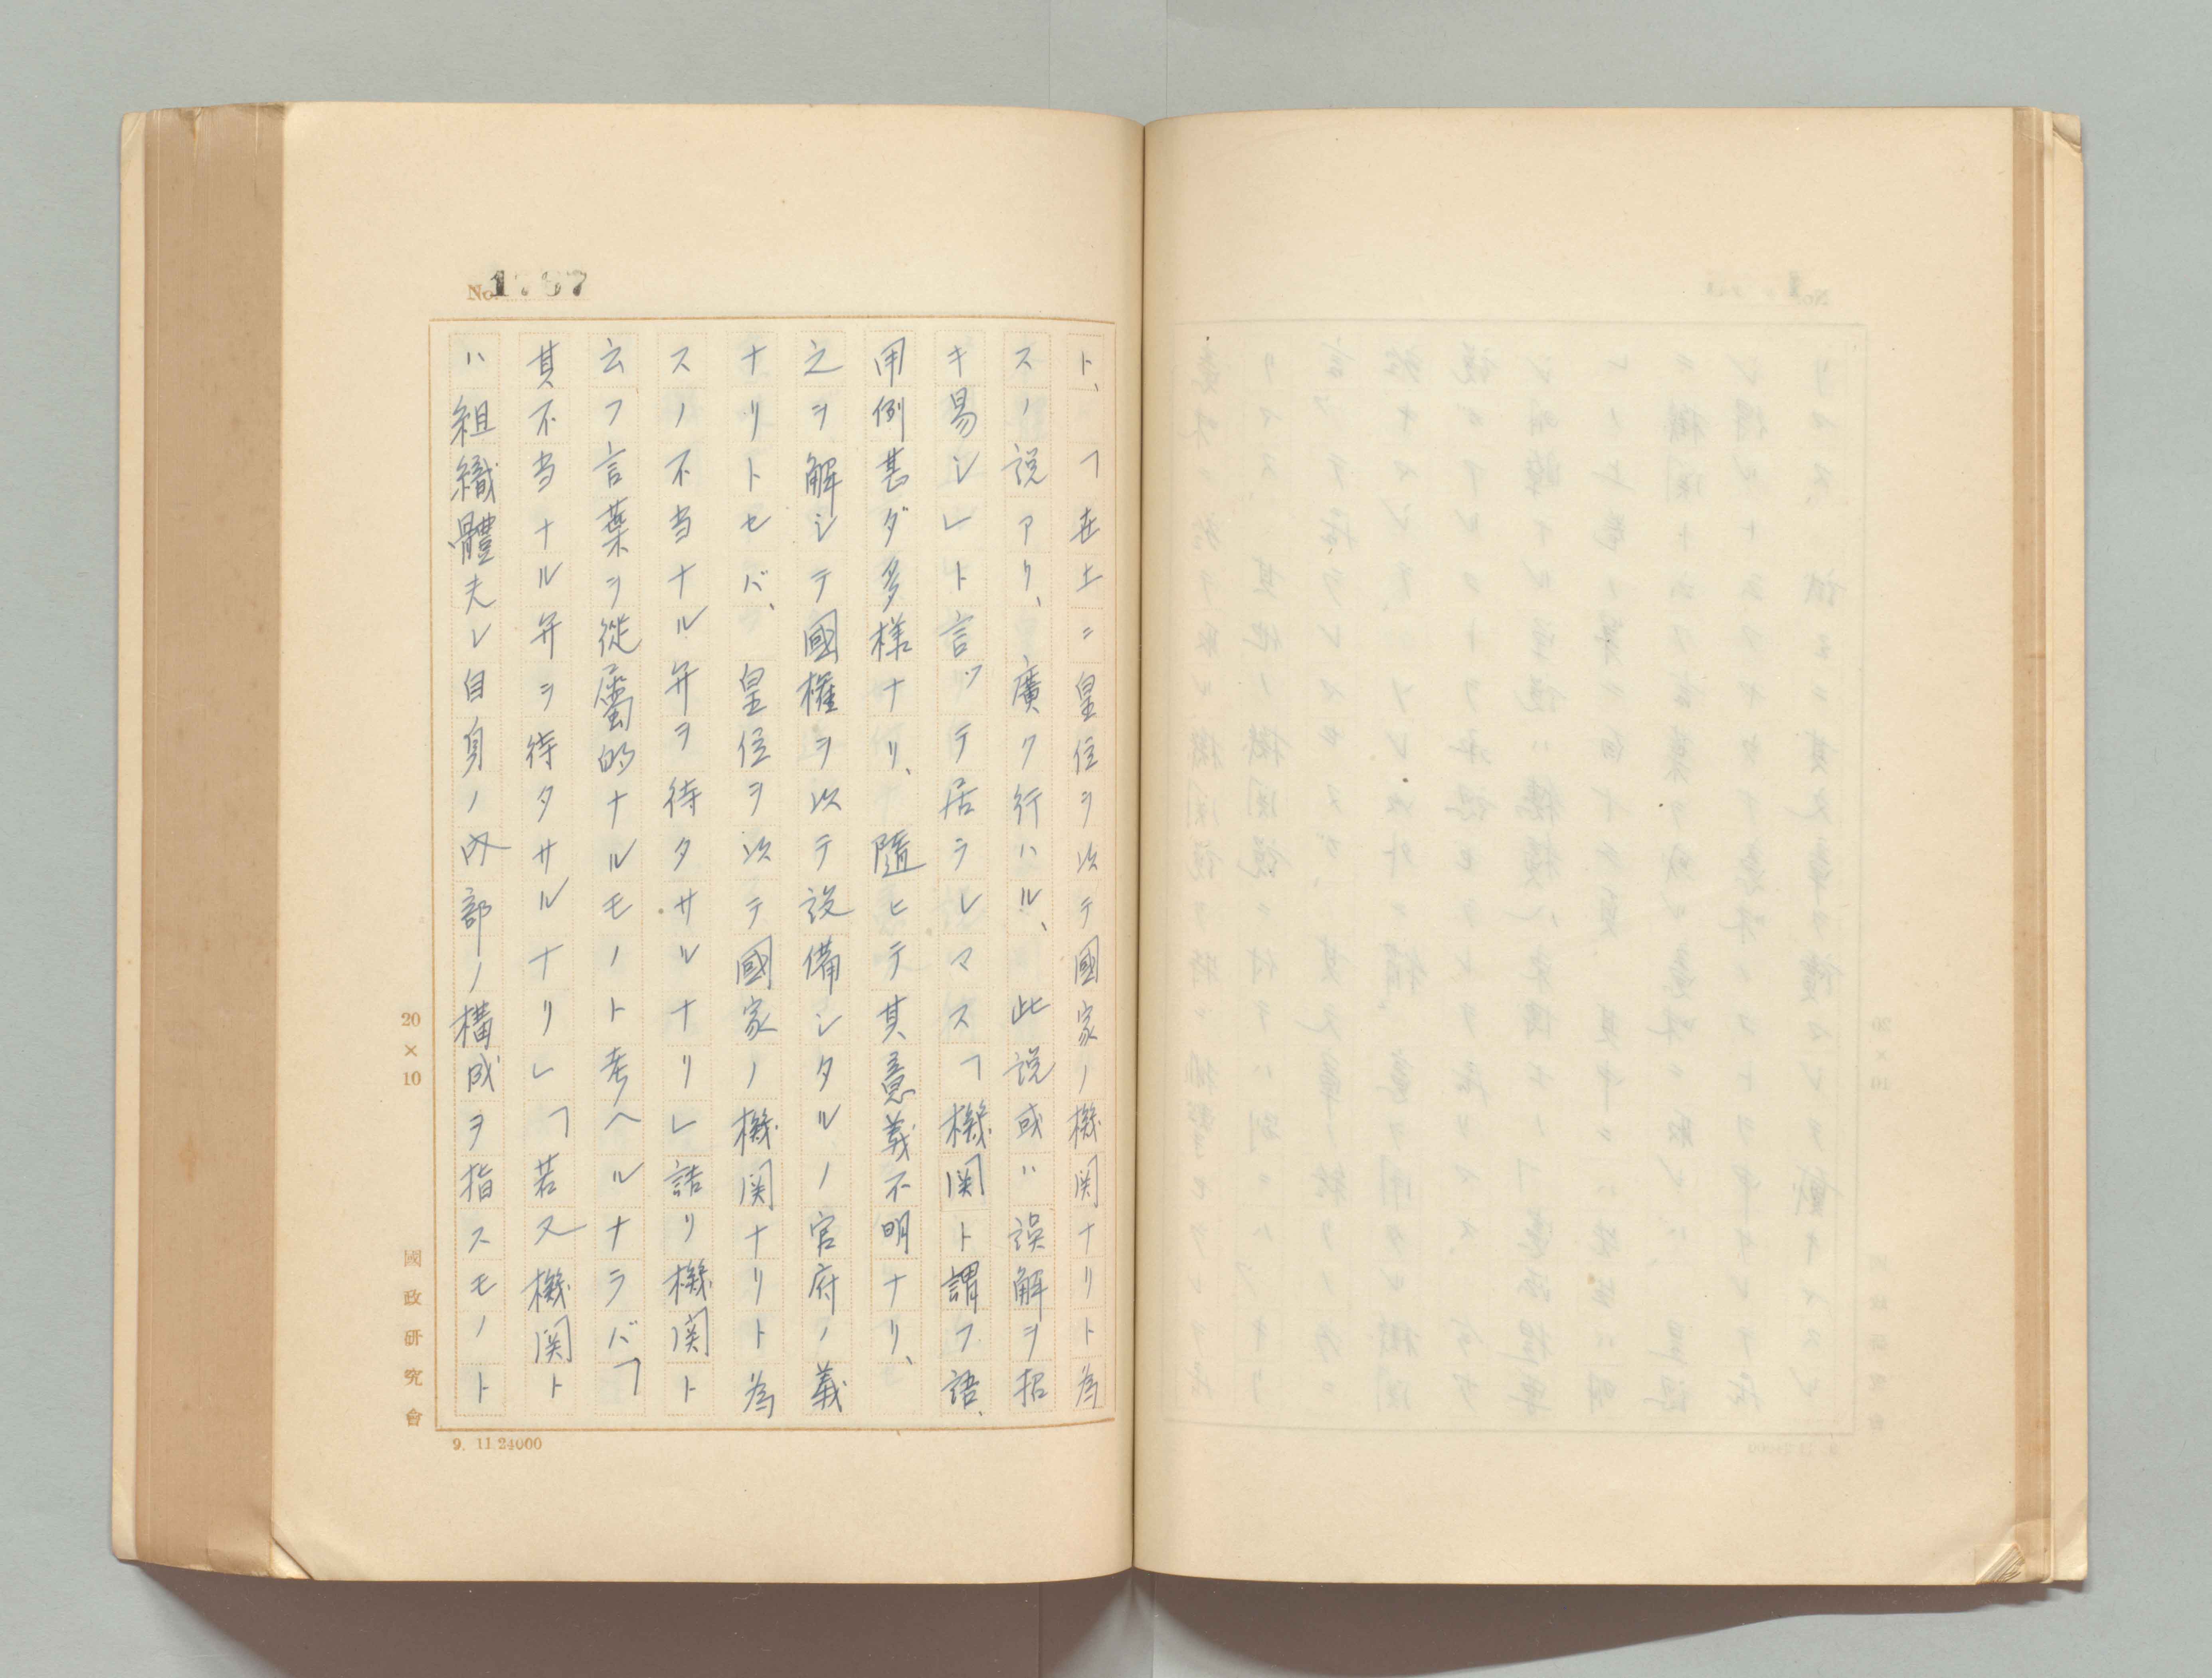 ト、「在上ニ皇位ヲ以テ國家ノ機関ナリト為
スノ説アリ、廣ク行ハル、此説或ハ誤解ヲ招
キ易シレト言ッテ居ラレマス「機関ト謂フ語、
用例甚ダ多様ナリ、隨ヒテ其意義不明ナリ、
之ヲ解シテ國權ヲ以テ設備シタルノ官府ノ義
ナリトセバ、皇位ヲ以テ國家ノ機関ナリト為
スノ不当ナル弁ヲ待タサルナリレ詰リ機関ト
云フ言葉ヲ從屬的ナルモノト考ヘルナラバ「
其不当ナル弁ヲ待タサルナリレ「若又機関ト
ハ組織體夫レ自身ノ内部ノ構成ヲ指スモノト
20×10
國政研究會
9. 11 24000